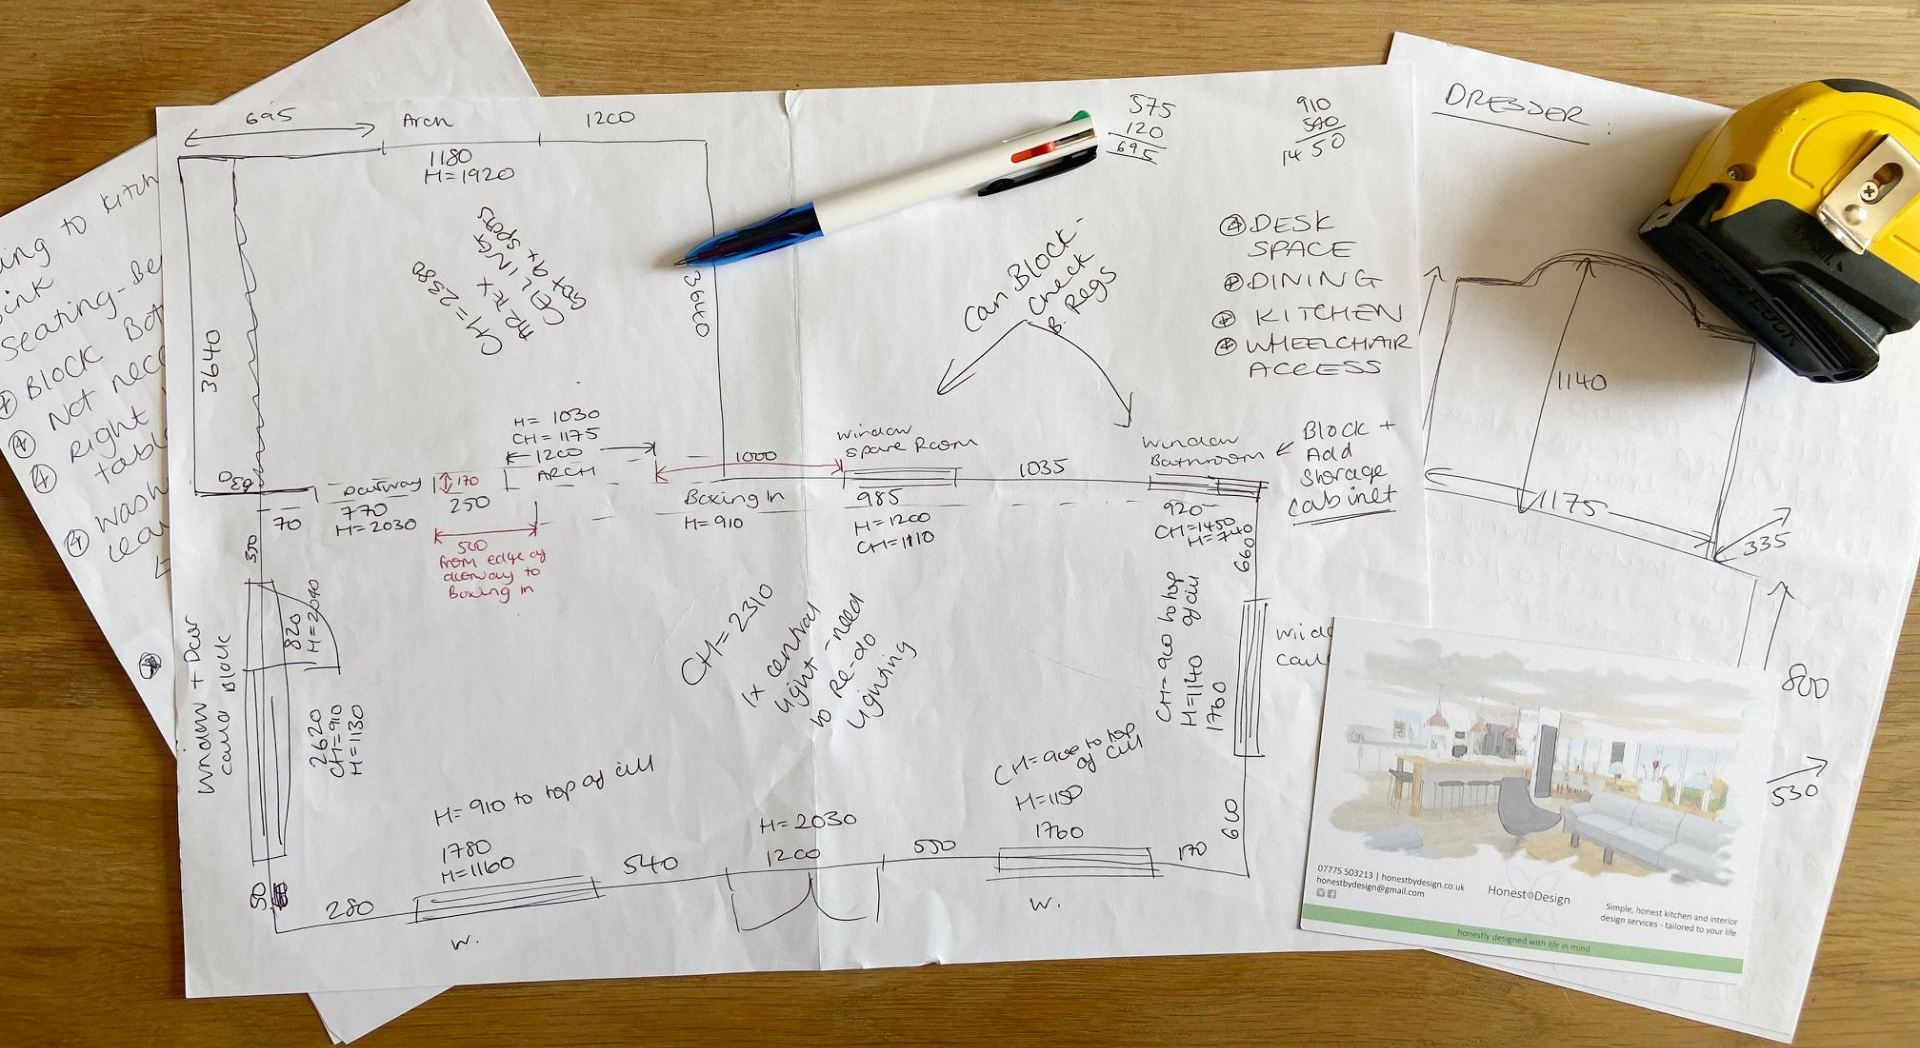 ing to Kitch
ink
seating-Be
Block Bot
Not nec
Right
table
wash
DRESSER :
1140
1175
335
800
530
695
Arch
1200
1180
H=1920
575
120
695
910
540
1450
3640
CH=2380
ARTEX
CEILING
3640
Can Block -
Check
B. Regs
DESK
SPACE
DINING
KITCHEN
WHEELCHAIR
ACCESS
Block +
Add
Storage
Cabinet
H= 1030
CH= 1175
1200
ARCH
1000
Boxing In
H= 910
window
spare Room
985
H= 1200
CH= 1110
1035
window
Bathroom
920
CH=1450
H=740
660
70
Doorway
770
H= 2030
170
250
500
from edge of
doorway to
Boxing in
350
820
H=2040
window + Door
could Block
2620
CH=910
H=1130
CH= 2310
1x central
light -need
to Re-do
lighting
CH= 900 to top
of cill
H=1140
1760
H= 910 to top of cill
1780
H=1160
540
H= 2030
1200
550
CH= 900 to top
of cill
H=1150
1760
170
50
280
W.
W.
07775 503213 | honestbydesign.co.uk
honestbydesign@gmail.com
Honest Design
Simple, honest kitchen and interior
design services - tailored to your life
honestly designed with life in mind